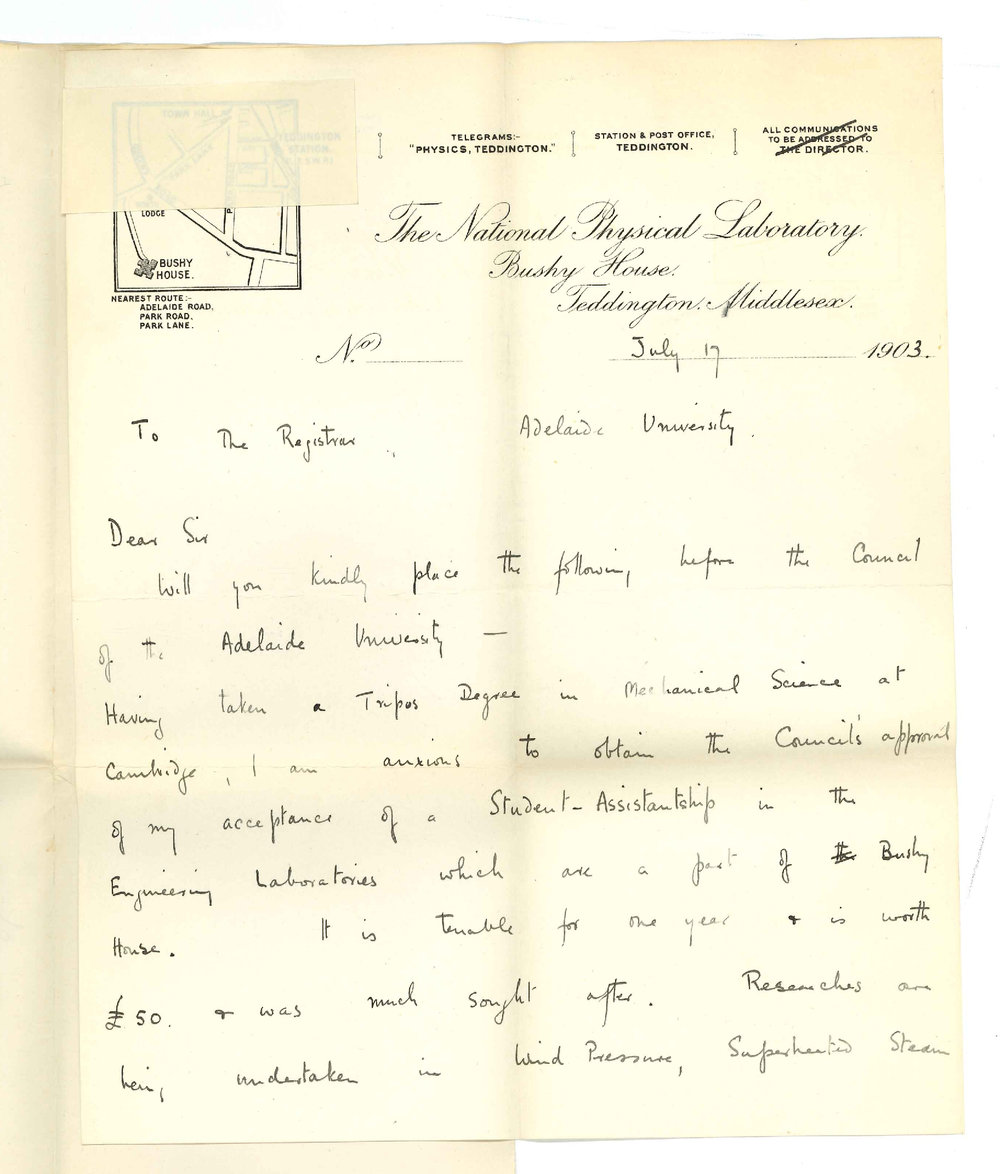 TOWN HALL
PARK LANE
TEDDINGTON
STATION.
LODGE
BUSHY
HOUSE.
NEAREST ROUTE:-
ADELAIDE ROAD,
PARK ROAD,
PARK LANE.
TELEGRAMS:-
"PHYSICS, TEDDINGTON."
STATION & POST OFFICE,
TEDDINGTON.
ALL COMMUNICATIONS
TO BE ADDRESSED TO
THE DIRECTOR.
The National Physical Laboratory.
Bushy House.
Teddington. Middlesex.
No.
July 17 1903.
To The Registrar, Adelaide University.
Dear Sir
Will you kindly place the following before the Council
of the Adelaide University —
Having taken a Tripos Degree in Mechanical Science at
Cambridge, I am anxious to obtain the Council's approval
of my acceptance of a Student-Assistantship in the
Engineering Laboratories which are a part of the Bushy
House. It is tenable for one year & is worth
£50. & was much sought after. Researches are
being undertaken in Wind Pressure, Superheated Steam